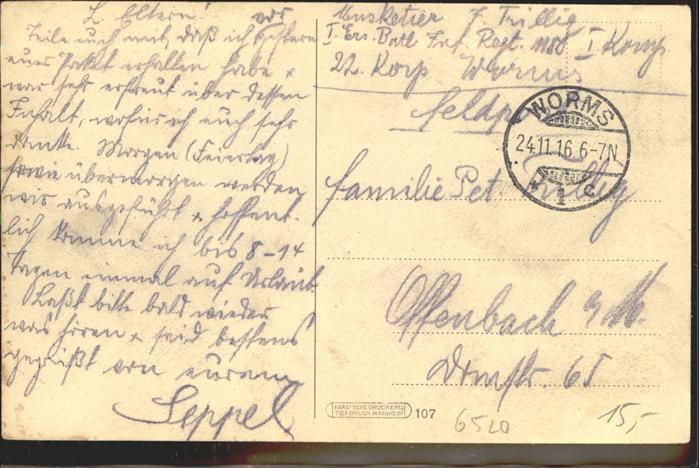 L. Eltern! vor
Teile euch mit, daß ich gestern
eures Paket erhalten habe +
war sehr erfreut über dessen
Inhalt, wofür ich euch sehr
danke. Morgen (Feiertag)
sowie übermorgen werden
wir ausgeführt + hoffent-
lich komme ich bis 8-14
Tagen einmal auf Urlaub.
Laßt bitte bald wieder
was hören + seid bestens
gegrüßt von eurem
Seppel
Musketier J. Trillig
I. Ers. Batl. Inf. Regt. 118 I Komp.
22. Korp Worms
Feldp
WORMS
24.11.16.6-7N.
* 1 c
Familie Pet. Trillig
Offenbach a/M.
Domstr. 65
HAAS'SCHE DRUCKEREI
TIEFDRUCK MANNHEIM
107
6520
15,-